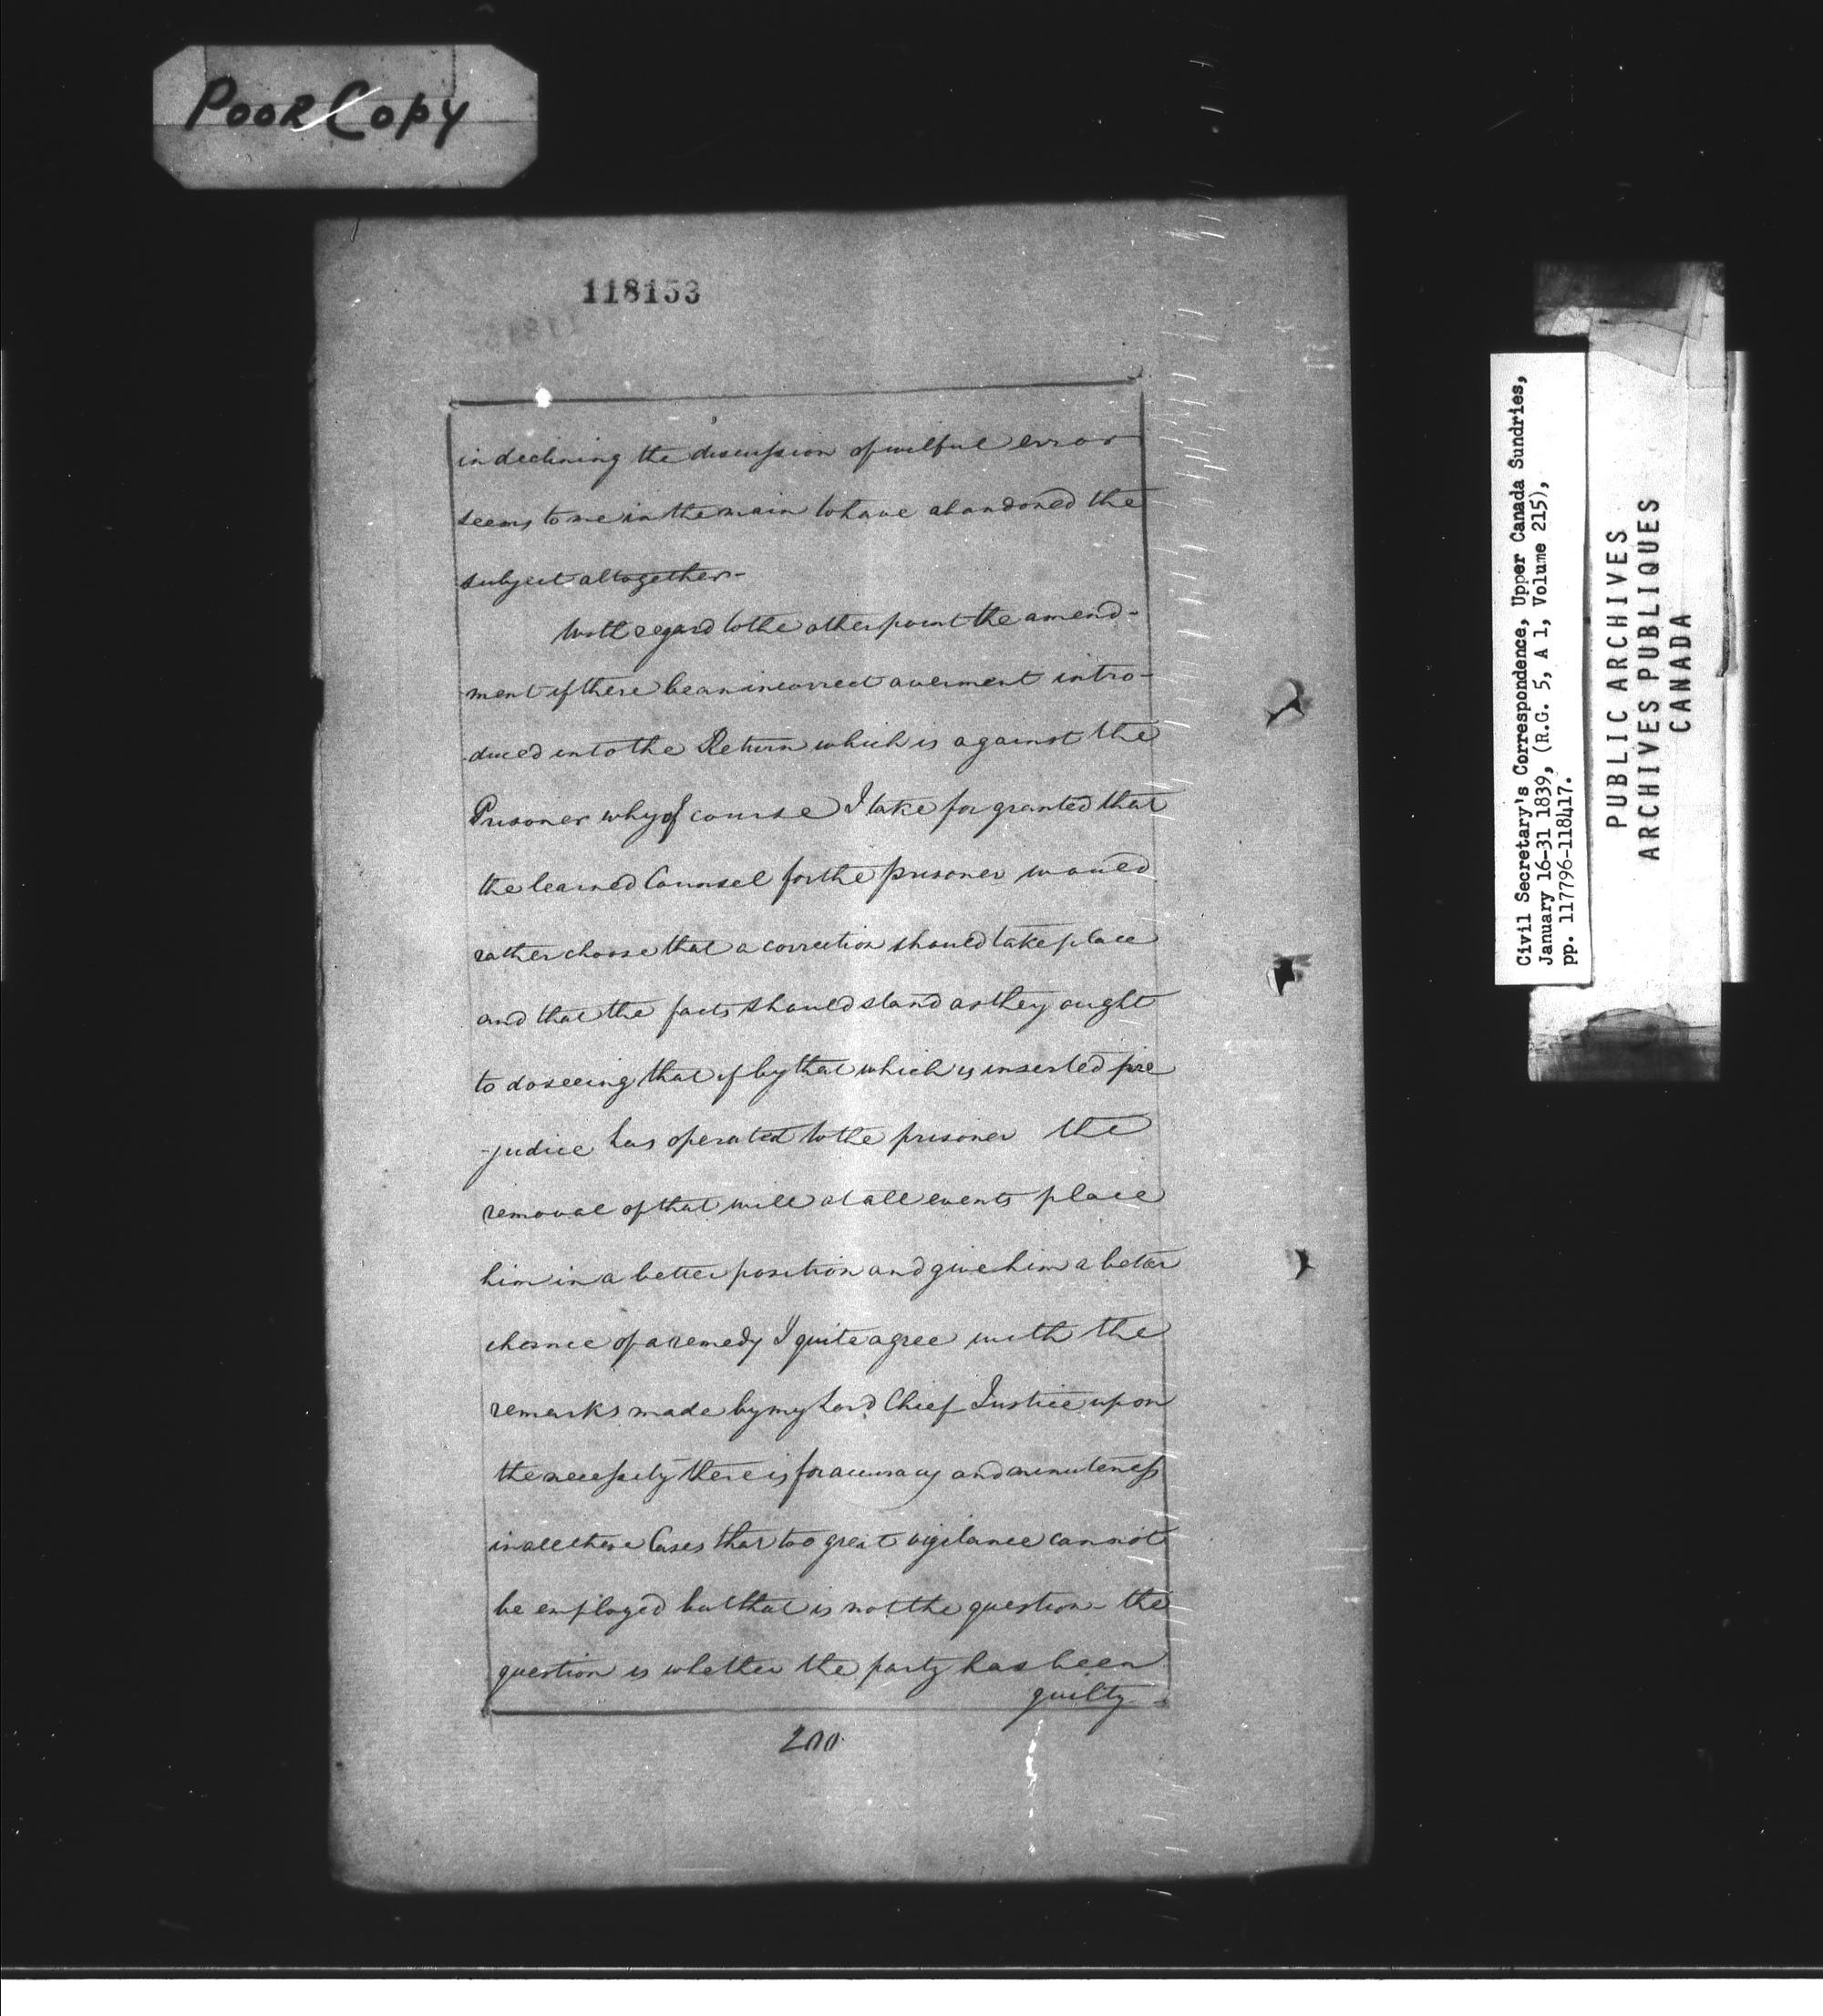 Poor Copy
118153
in declining the discussion of wilful error
seems to me in the main to have abandoned the
subject altogether-
With regard to the other point the amend-
ment if there be an incorrect averment intro-
duced into the Return which is against the
Prisoner why of course I take for granted that
the learned Counsel for the prisoner would
rather choose that a correction should take place
and that the facts should stand as they ought
to do seeing that if by that which is inserted pre
-judice has operated to the prisoner the
removal of that will at all events place
him in a better position and give him a better
chance of a remedy I quite agree with the
remarks made by my Lord Chief Justice upon
the necessity there is for accuracy and minuteness
in all these Cases that too great vigilance cannot
be employed but that is not the question - the
question is whether the party has been
guilty
200
Civil Secretary's Correspondence, Upper Canada Sundries,
January 16-31 1839, (R.G. 5, A 1, Volume 215),
pp. 117796-118417.
PUBLIC ARCHIVES
ARCHIVES PUBLIQUES
CANADA